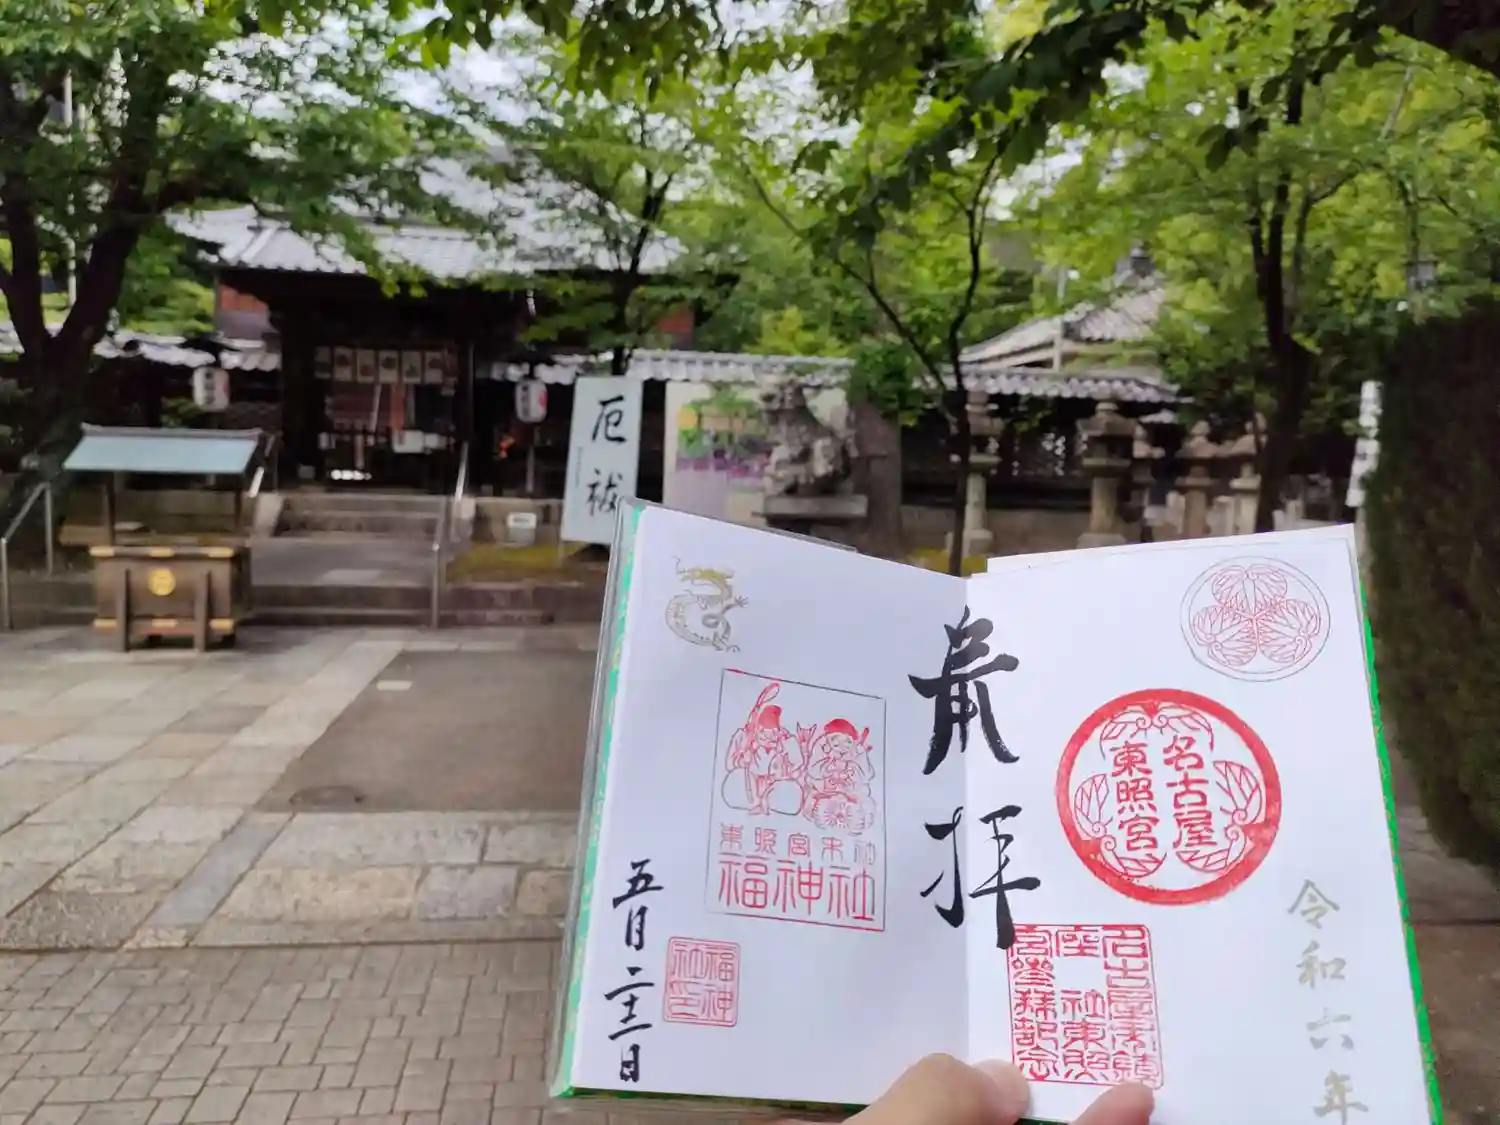 厄祓
令和六年
名古屋
東照宮
奉拝
名古屋市鎮
座 社東照
東照宮末社
福神社
福神
社印
五月二十二日